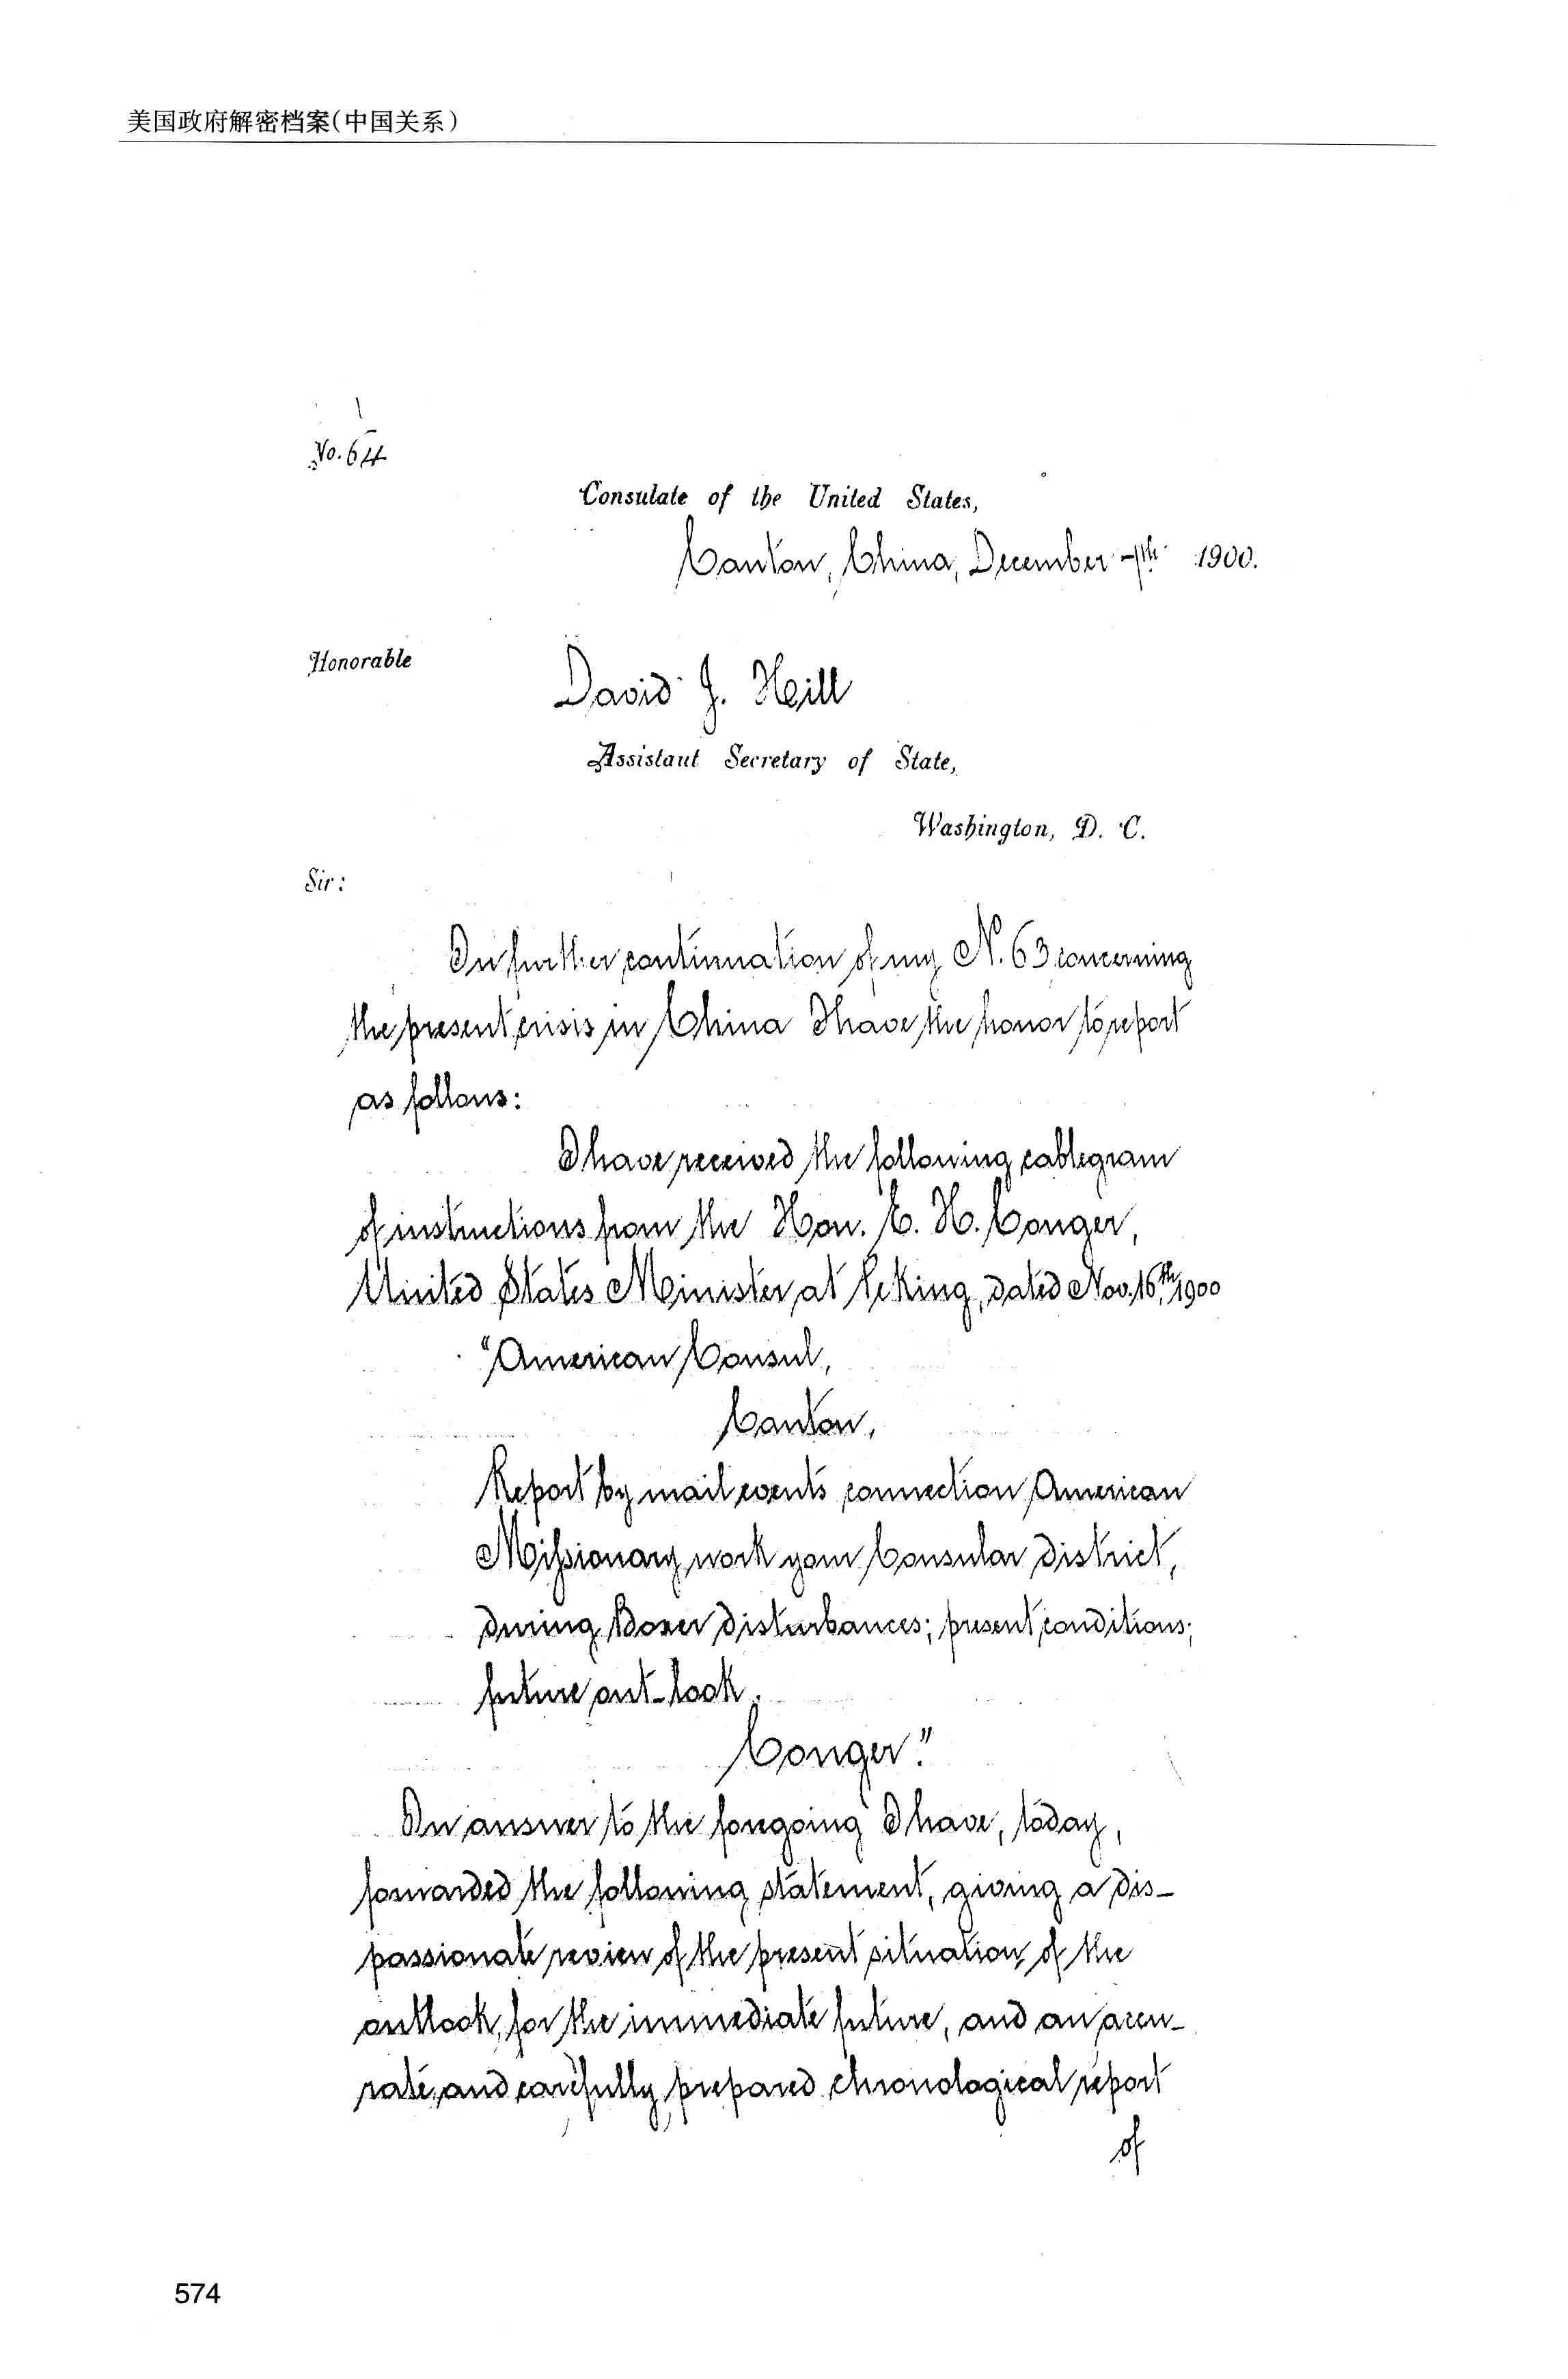 美国政府解密档案(中国关系)
No. 64
Consulate of the United States,
Canton, China, December 7th 1900.
Honorable
David J. Hill
Assistant Secretary of State,
Washington, D. C.
Sir:
In further continuation of my N. 63 concerning
the present crisis in China I have the honor to report
as follows:
I have received the following cablegram
of instructions from the Hon. E. H. Conger,
United States Minister at Peking, dated Nov. 16th, 1900
"American Consul,
Canton,
Report by mail events connection American
Missionary work your Consular district,
during Boxer disturbances; present conditions;
future out-look.
Conger."
In answer to the foregoing I have, today,
forwarded the following statement, giving a dis-
passionate review of the present situation, of the
outlook, for the immediate future, and an accu-
rate, and carefully prepared chronological report
of
574